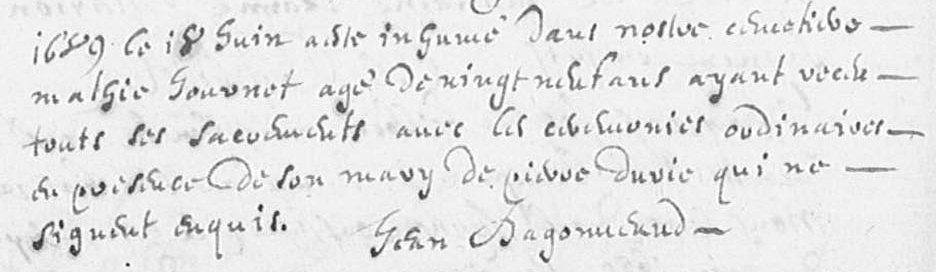 1689 le 18 Juin a este inhumé dans nostre cimetiere
mathie Journet agé de vingt neuf ans ayant receu
touts ses sacrements avec les ceremonies ordinaires
en presence de son mary de pierre durie qui ne
signent enquis. Jean